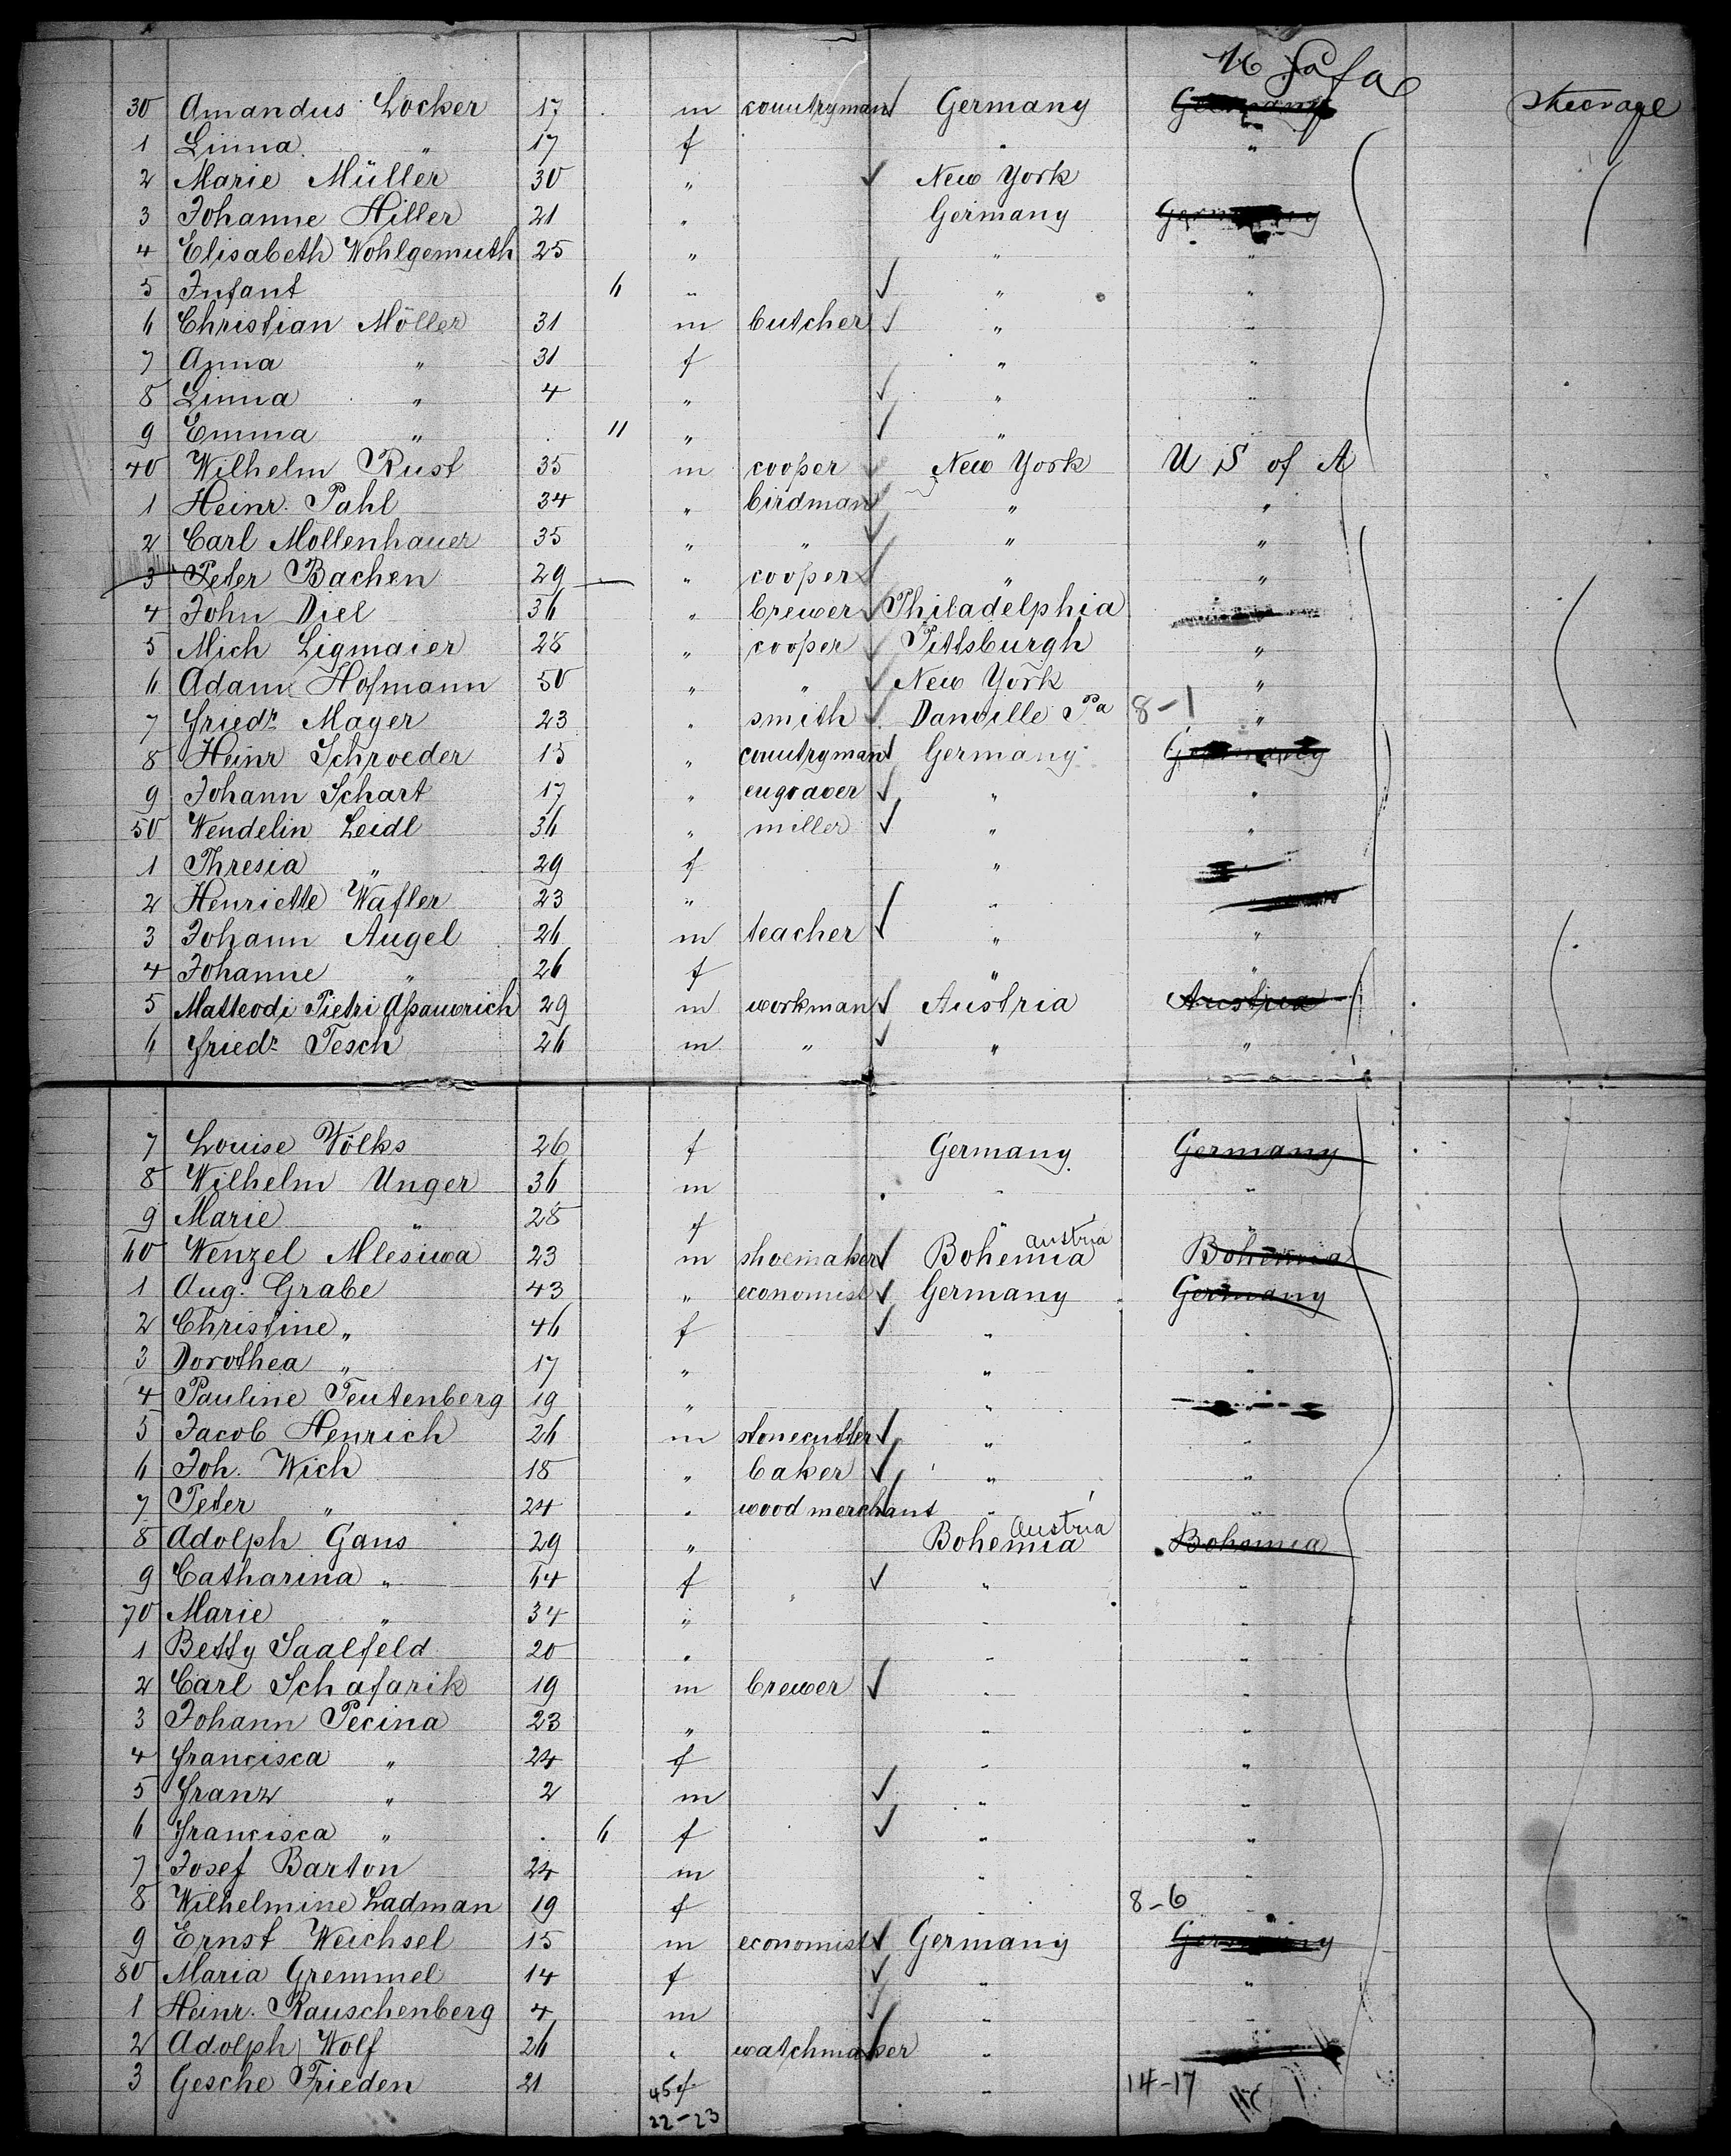 16
30 Amandus Locker 17 m countryman Germany Germany Steerage
1 Linna " 17 f " "
2 Marie Müller 30 " New York
3 Johanne Hiller 21 " Germany Germany
4 Elisabeth Wohlgemuth 25 " " "
5 Infant 6 " " "
6 Christian Möller 31 m butcher " "
7 Anna " 31 f " "
8 Linna " 4 " " "
9 Emma " 11 " "
40 Wilhelm Rust 35 m cooper New York U S of A
1 Heinr. Pahl 34 " birdman " "
2 Carl Mollenhauer 35 " " " "
3 Peter Bachen 29 " cooper " "
4 John Diel 36 " brewer Philadelphia
5 Mich Ligmaier 28 " cooper Pittsburgh "
6 Adam Hofmann 50 " " New York "
7 Friedr Mayer 23 " smith Danville Pa 8-1 "
8 Heinr Schroeder 15 " countryman Germany Germany
9 Johann Schart 17 " engraver " "
50 Wendelin Leidl 36 " miller " "
1 Thresia " 29 f "
2 Henriette Wafler 23 " "
3 Johann Augel 26 m teacher " "
4 Johanne " 26 f " "
5 Matteodi Pietri 29 m workman Austria Austria
6 Friedr Tesch 26 m " " "
7 Louise Völks 26 f Germany Germany
8 Wilhelm Unger 36 m " "
9 Marie " 28 f " "
60 Wenzel Mlesiwa 23 m shoemaker Bohemia Austria Bohemia
1 Aug. Grabe 43 " economist Germany Germany
2 Christine " 46 f " "
3 Dorothea " 17 " " "
4 Pauline Teutenberg 19 " "
5 Jacob Henrich 26 m stonecutter " "
6 Joh. Wich 18 " baker " "
7 Peter " 24 " wood merchant " "
8 Adolph Gans 29 " Bohemia Austria Bohemia
9 Catharina " 64 f " "
70 Marie " 34 " " "
1 Betty Saalfeld 20 " " "
2 Carl Schafarik 19 m brewer " "
3 Johann Pecina 23 " " "
4 Francisca " 24 f " "
5 Franz " 2 m " "
6 Francisca " 6 f " "
7 Josef Barton 24 m " "
8 Wilhelmine Ladman 19 f " 8-6
9 Ernst Weichsel 15 m economist Germany Germany
80 Maria Gremmel 14 f " "
1 Heinr. Rauschenberg 4 m " "
2 Adolph Wolf 26 " watchmaker "
3 Gesche Frieden 21 f " 14-17
45
22-23